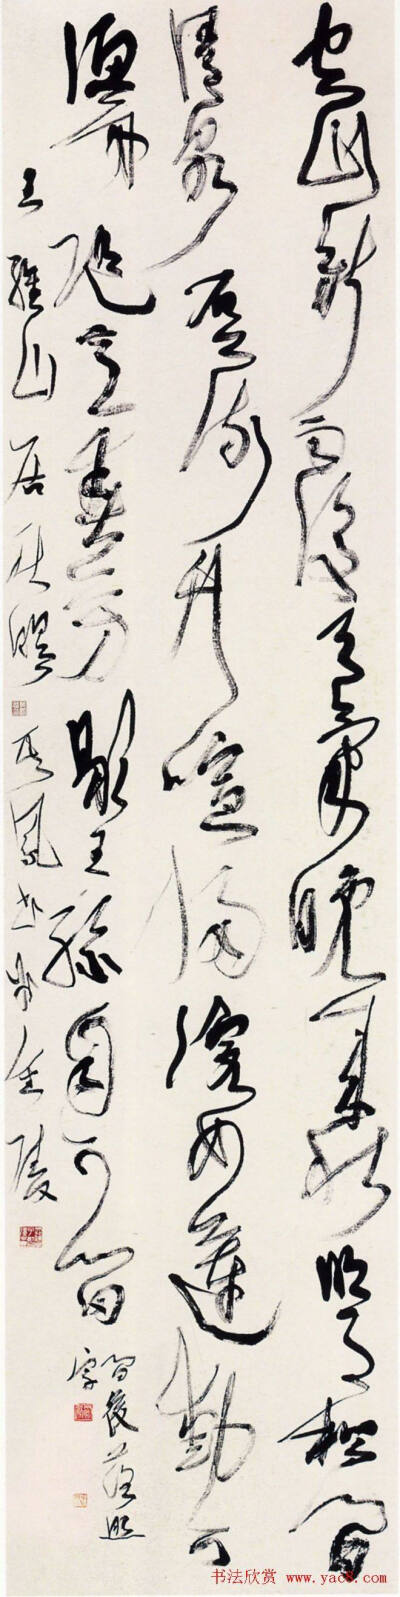 空山新雨後天氣晚來秋明月松間
清泉石上流竹喧歸浣女蓮動下
漁舟隨意春芳歇王孫自可留
間後落照
字
王維山居秋暝 於金陵
书法欣赏 www.yac8.com